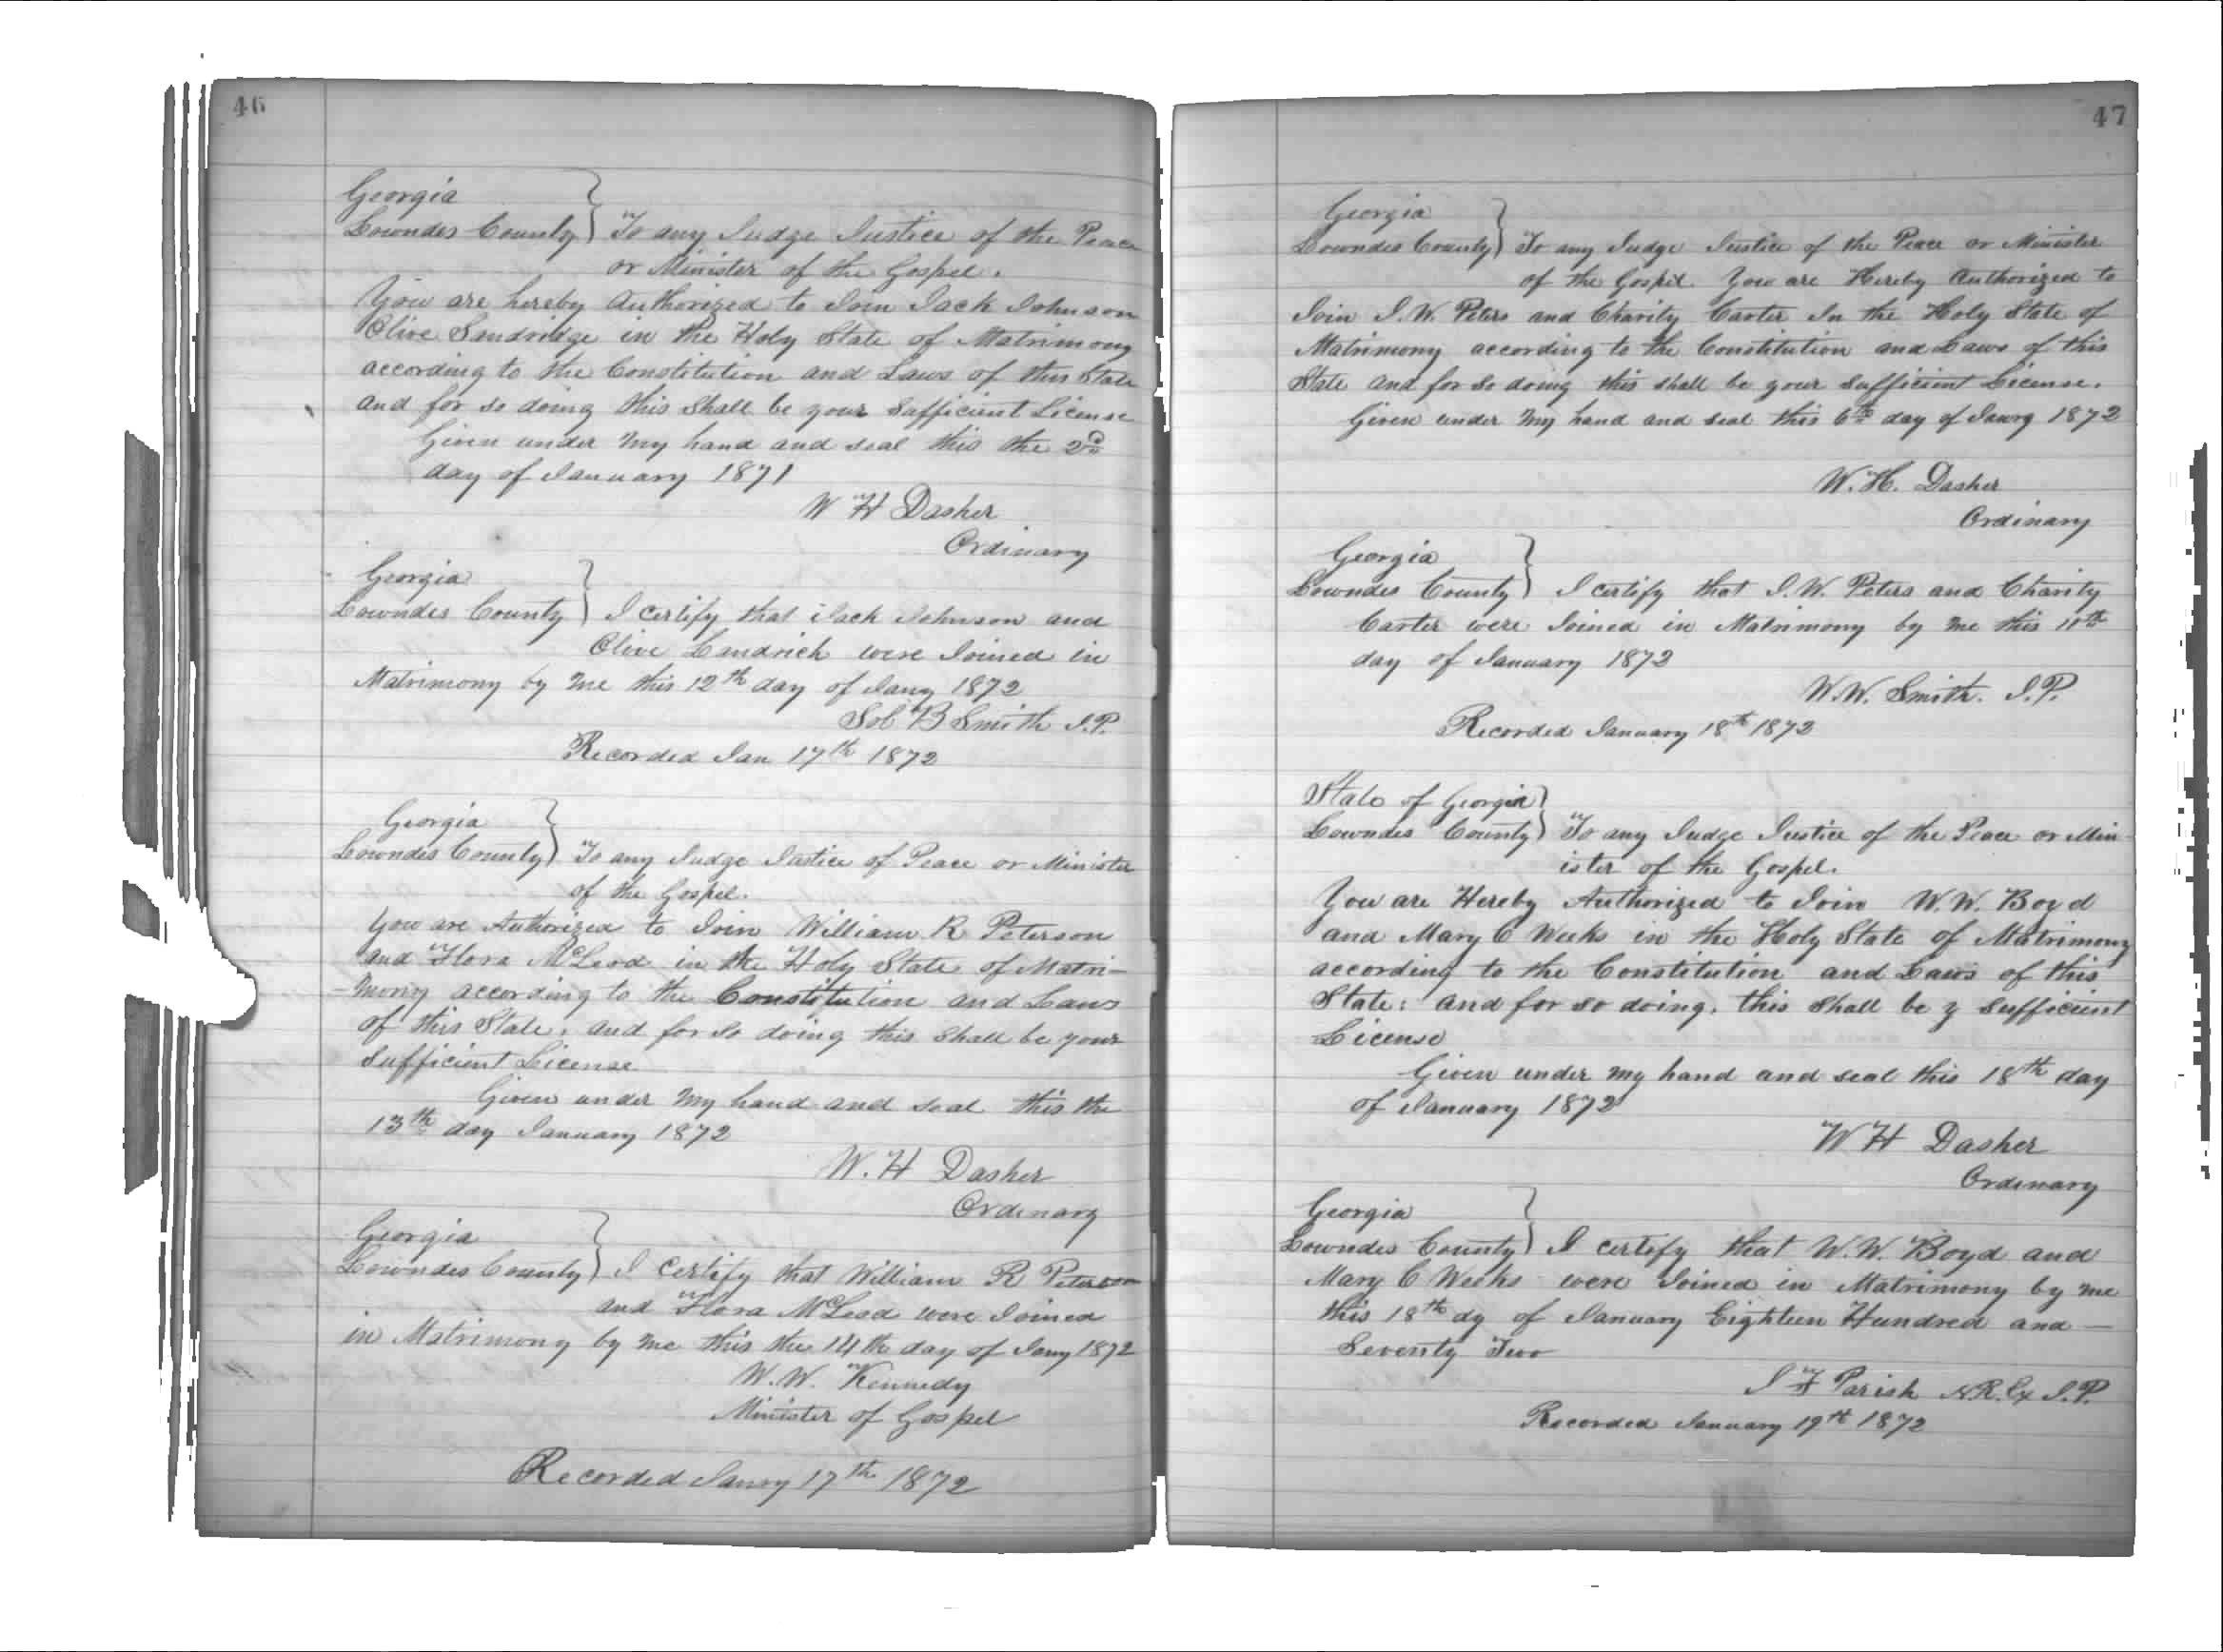 46
Georgia
Lowndes County } To any Judge Justice of the Peace
or Minister of the Gospel.
You are hereby Authorized to Join Jack Johnson
Olive Sandridge in the Holy State of Matrimony
according to the Constitution and Laws of this State
and for so doing this shall be your Sufficient License
Given under my hand and seal this the 2d
day of January 1871
W H Dasher
Ordinary
Georgia
Lowndes County } I certify that Jack Johnson and
Olive Landrich were Joined in
Matrimony by me this 12th day of Jany 1872
Sol B Smith J.P.
Recorded Jan 17th 1872
Georgia
Lowndes County } To any Judge Justice of Peace or Minister
of the Gospel.
You are Authorized to Join William R Peterson
and Flora McLeod in the Holy State of Matri-
-mony according to the Constitution and Laws
of this State, and for so doing this shall be your
Sufficient License
Given under my hand and seal this the
13th day January 1872
W. H Dasher
Ordinary
Georgia
Lowndes County } I Certify that William R Peterson
and Flora McLeod were Joined
in Matrimony by me this the 14th day of Jany 1872
W. W. Kennedy
Minister of Gospel
Recorded Jany 17th 1872
47
Georgia
Lowndes County } To any Judge Justice of the Peace or Minister
of the Gospel. You are Hereby Authorized to
Join J. W. Peters and Charity Carter In the Holy State of
Matrimony according to the Constitution and Laws of this
State and for so doing this shall be your Sufficient License.
Given under my hand and seal this 6th day of Jany 1872
W. H. Dasher
Ordinary
Georgia
Lowndes County } I certify that J. W. Peters and Charity
Carter were Joined in Matrimony by me this 11th
day of January 1872
W. W. Smith. J. P.
Recorded January 18th 1872
State of Georgia
Lowndes County } To any Judge Justice of the Peace or Min
ister of the Gospel.
You are Hereby Authorized to Join W. W. Boyd
and Mary C Weeks in the Holy State of Matrimony
according to the Constitution and Laws of this
State: and for so doing, this shall be y Sufficient
License
Given under my hand and seal this 18th day
of January 1872
W H Dasher
Ordinary
Georgia
Lowndes County } I certify that W. W. Boyd and
Mary C Weeks were Joined in Matrimony by me
this 18th dy of January Eighteen Hundred and —
Seventy Two
J F Parish N.P. Ex J.P.
Recorded January 19th 1872